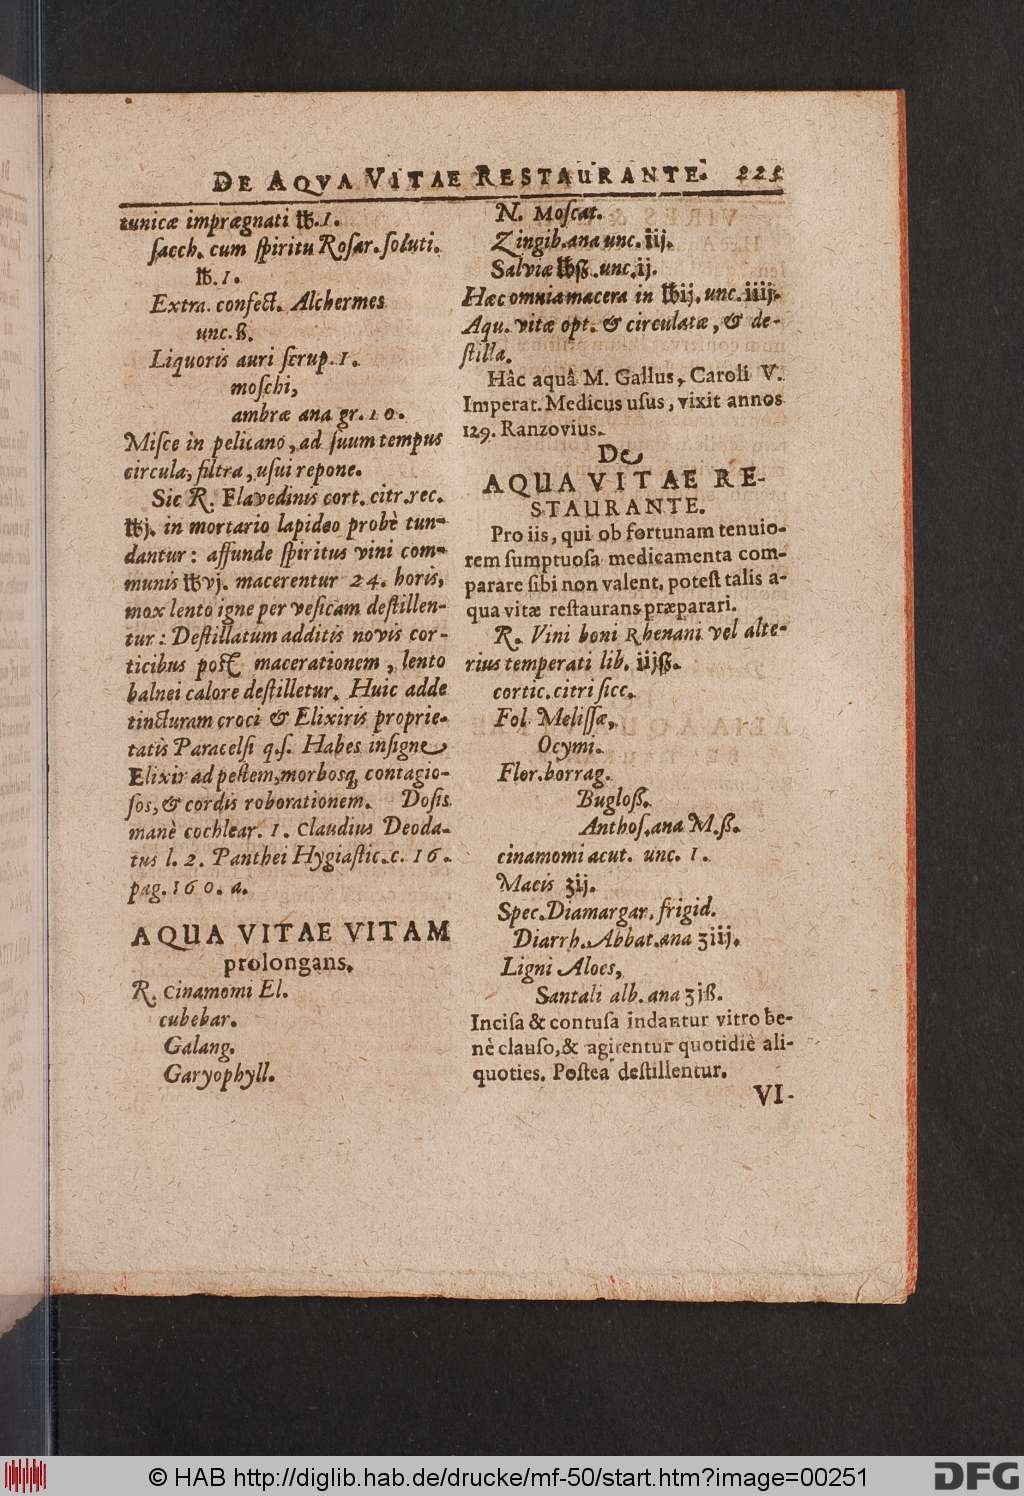 DE AQVA VITAE RESTAURANTE. 221
tunicæ imprægnati ℔.1.
sacch. cum spiritu Rosar. soluti.
℔.1.
Extra. confect. Alchermes
unc.ß.
Liquoris auri scrup.1.
moschi,
ambræ ana gr.10.
Misce in pelicano, ad suum tempus
circula, filtra, usui repone.
Sic R. Flavedinis cort. citr.rec.
℔j. in mortario lapideo probè tun-
dantur: affunde spiritus vini com-
munis ℔vj. macerentur 24. horis,
mox lento igne per vesicam destillen-
tur: Destillatum additis novis cor-
ticibus post macerationem, lento
balnei calore destilletur. Huic adde
tincturam croci & Elixiris proprie-
tatis Paracelsi q.s. Habes insigne
Elixir ad pestem, morbosq; contagio-
sos, & cordis roborationem. Dosis
manè cochlear. 1. Claudius Deoda-
tus l. 2. Panthei Hygiastic.c. 16.
pag.160.a.
AQUA VITAE VITAM
prolongans.
R. Cinamomi El.
cubebar.
Galang.
Garyophyll.
N. Moscat.
Zingib.ana unc.iij.
Salviæ ℔ß.unc.ij.
Hæc omnia macera in ℔ij.unc.iiij.
Aqu. vitæ opt. & circulatæ, & de-
stilla.
Hâc aquâ M. Gallus, Caroli V.
Imperat. Medicus usus, vixit annos
129. Ranzovius.
De
AQUA VITAE RE-
STAURANTE.
Pro iis, qui ob fortunam tenuio-
rem sumptuosa medicamenta com-
parare sibi non valent, potest talis a-
qua vitæ restaurans præparari.
R. Vini boni Rhenani vel alte-
rius temperati lib. iijß.
cortic.citri sicc.
Fol. Melissæ,
Ocymi.
Flor.borrag.
Bugloß.
Anthos.ana M.ß.
cinamomi acut. unc. 1.
Macis ʒij.
Spec.Diamargar.frigid.
Diarrh.Abbat.ana ʒiij.
Ligni Aloes,
Santali alb.ana ʒjß.
Incisa & contusa indantur vitro be-
nè clauso,& agitentur quotidiè ali-
quoties. Postea destillentur.
VI-
© HAB http://diglib.hab.de/drucke/mf-50/start.htm?image=00251
DFG